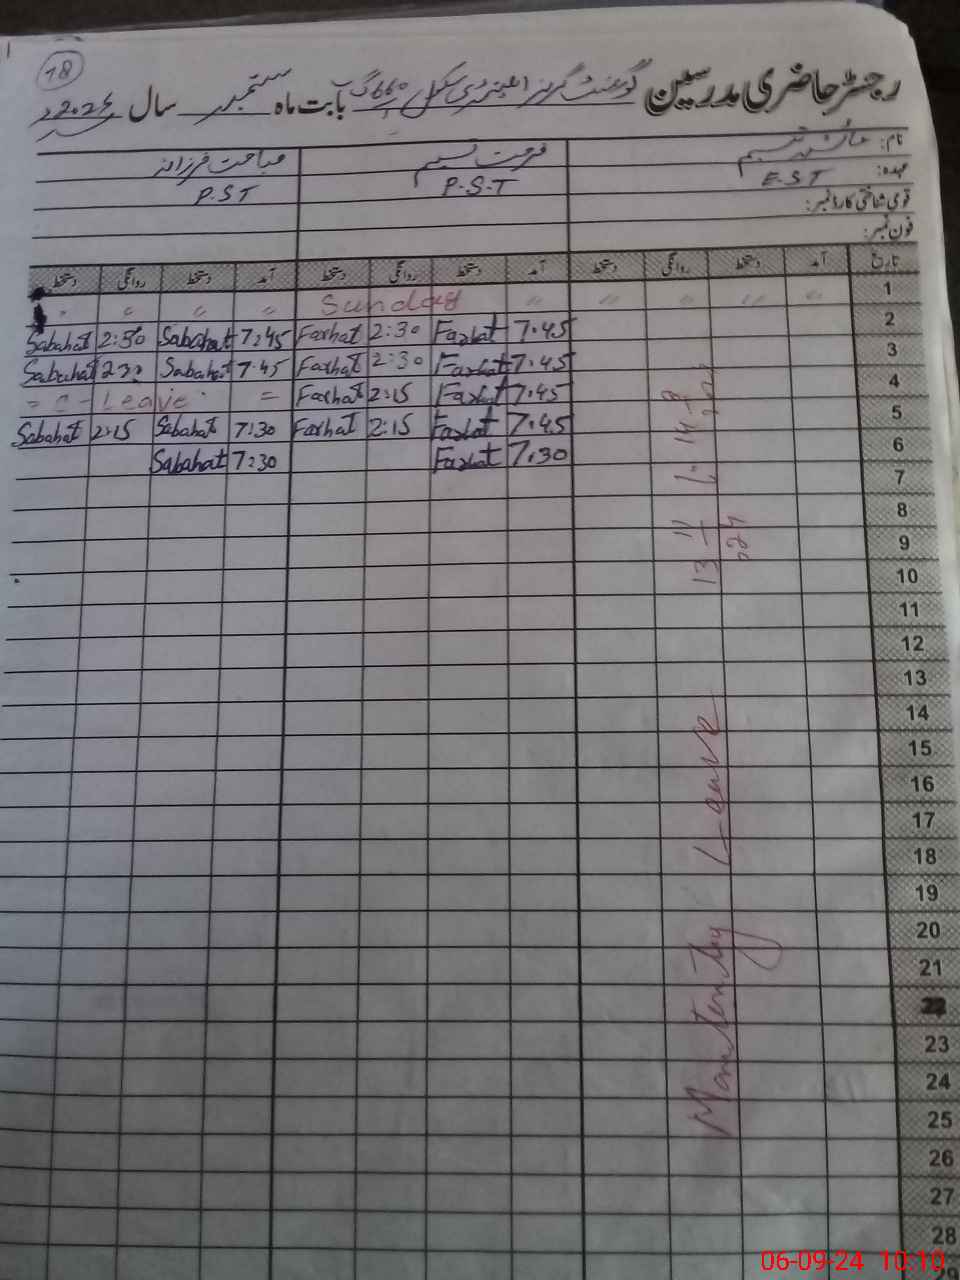 18
رجسٹر حاضری مدرسین گورنمنٹ گرلز ایلیمنٹری سکول 660 گ ب بابت ماہ ستمبر سال 2024ء
نام: تسیم فرحت نسیم صباحت فرزانہ
عہدہ: E.S.T P.S.T P.S.T
قومی شناختی کارڈ نمبر:
فون نمبر:
تاریخ آمد دستخط روانگی دستخط آمد دستخط روانگی دستخط آمد دستخط روانگی دستخط
" " " " Sunday " " " " " 1
Sabahat 2:30 Sabahat 7:45 Farhat 2:30 Farhat 7.45 2
Sabahat 2:30 Sabahat 7.45 Farhat 2:30 Farhat 7.45 3
= C - Leave = Farhat 2:15 Farhat 7.45 4
Sabahat 2:15 Sabahat 7:30 Farhat 2:15 Farhat 7.45 5
Sabahat 7:30 Farhat 7.30 6
7
8
9
10
11
12
13
14
15
16
17
18
19
20
21
22
23
24
25
26
27
28
29
Maretenity Leave
06-09-24 10:10